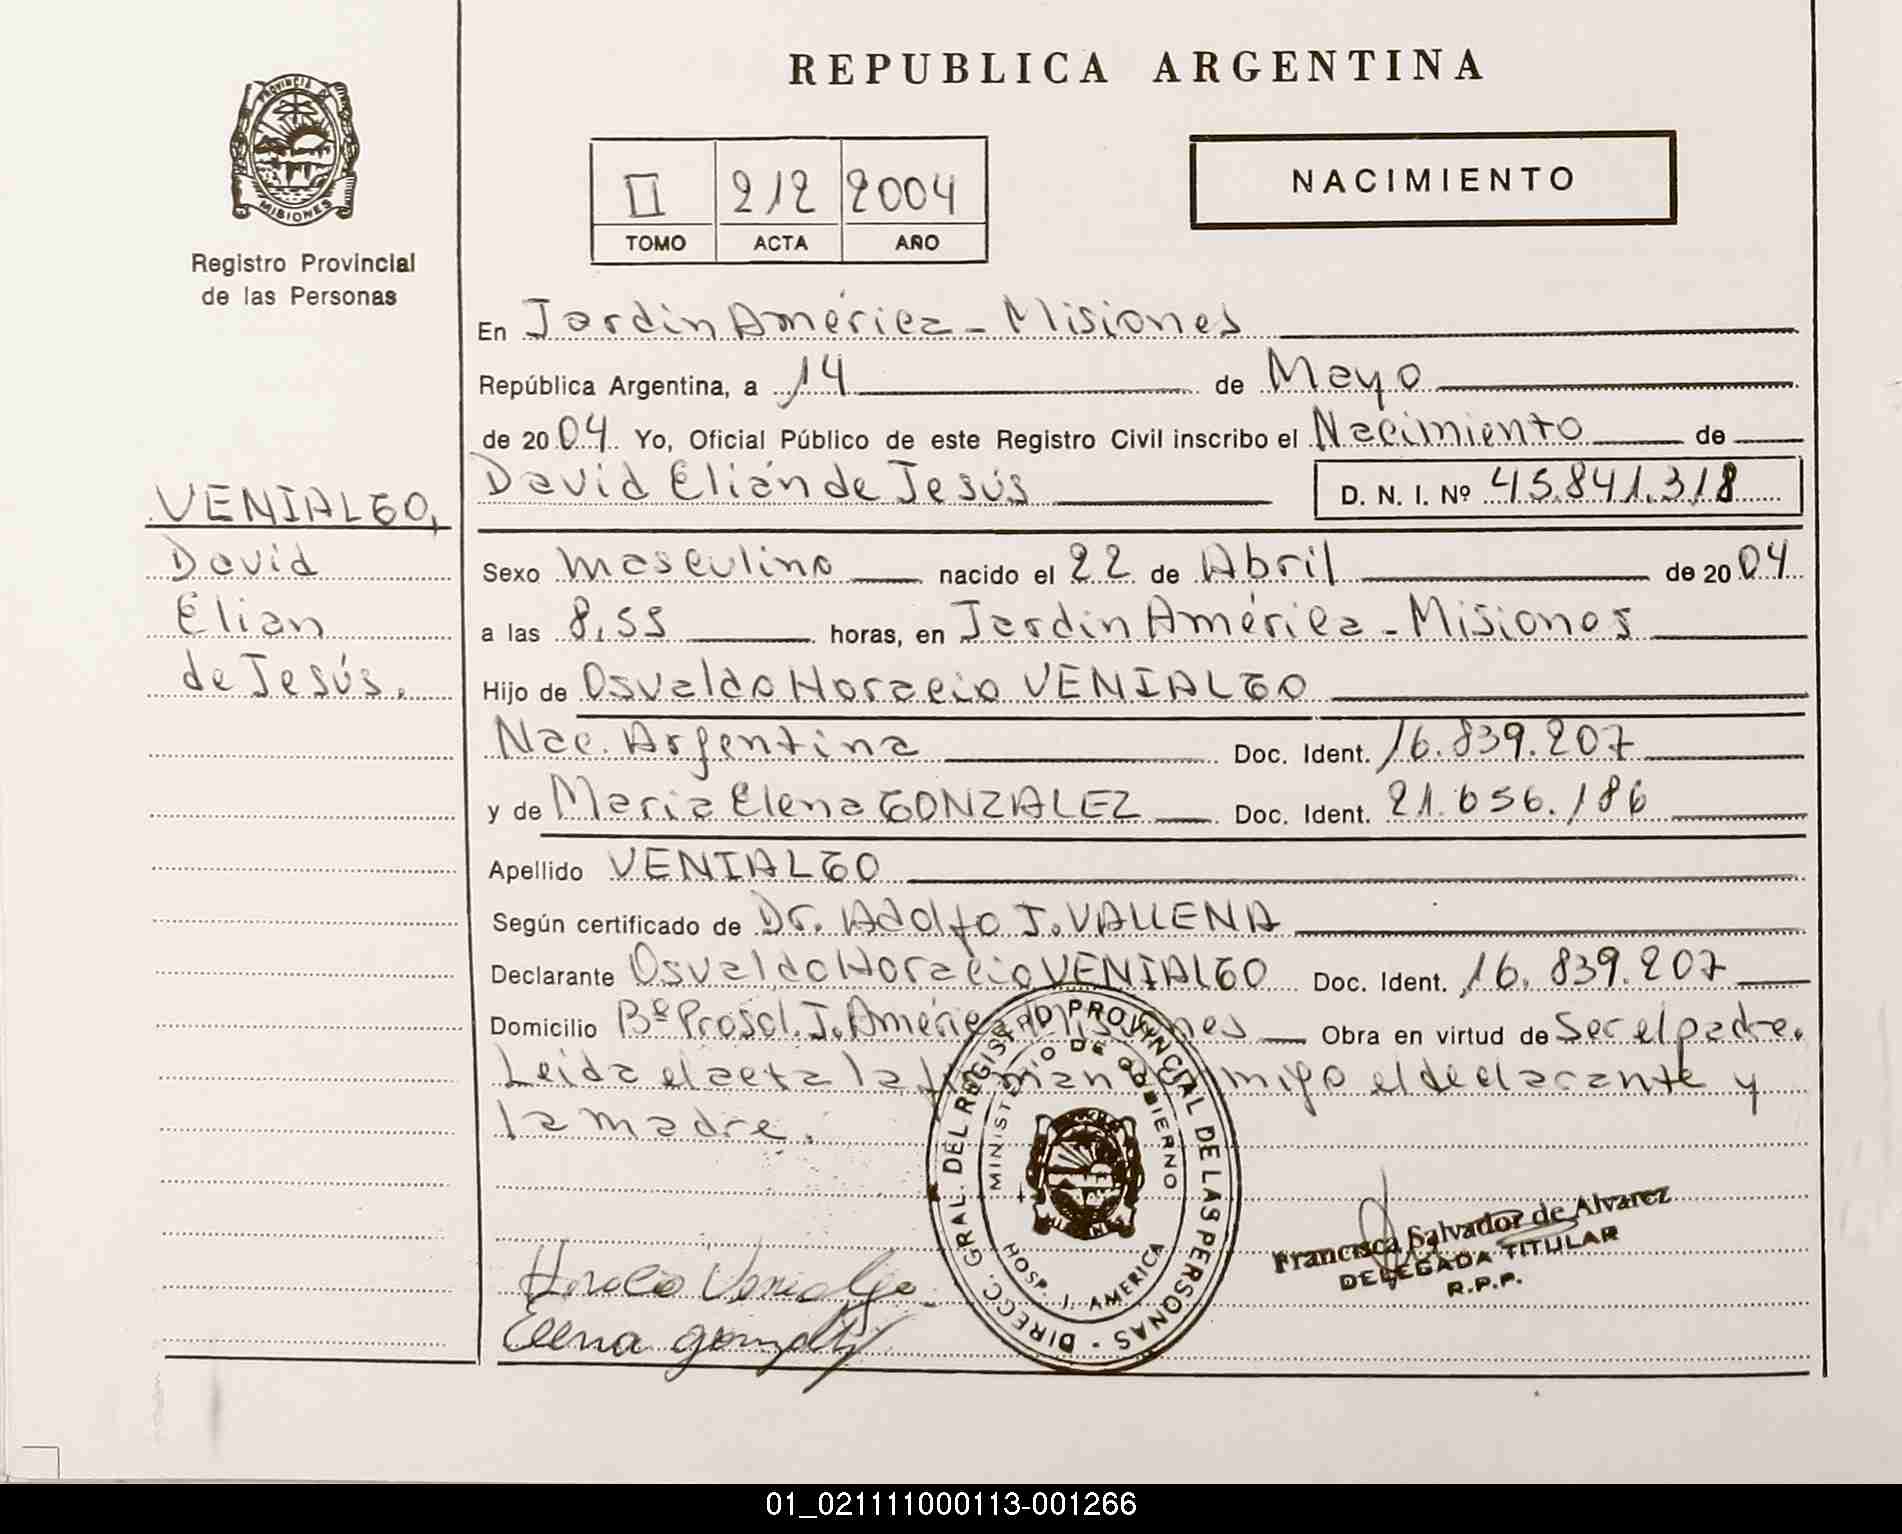 REPUBLICA ARGENTINA
PROVINCIA DE
MISIONES
Registro Provincial
de las Personas
II 212 2004
TOMO ACTA AÑO
NACIMIENTO
VENIALGO,
David
Elian
de Jesús.
En Jardin América - Misiones
República Argentina, a 14 de Mayo
de 2004 Yo, Oficial Público de este Registro Civil inscribo el Nacimiento de
David Elián de Jesús D. N. I. Nº 45.841.318
Sexo masculino nacido el 22 de Abril de 2004
a las 8,55 horas, en Jardin América - Misiones
Hijo de Osvaldo Horacio VENIALGO
Nac. Argentina Doc. Ident. 16.839.207
y de Maria Elena GONZALEZ Doc. Ident. 21.656.186
Apellido VENIALGO
Según certificado de Dr. Adolfo J. VALLENA
Declarante Osvaldo Horacio VENIALGO Doc. Ident. 16.839.207
Domicilio Bº Prosol. J. América Misiones Obra en virtud de Ser el padre.
Leida el acta la firman conmigo el declarante y
la madre.
DIRECC. GRAL. DEL REGISTRO PROVINCIAL DE LAS PERSONAS -
MINISTERIO DE GOBIERNO
MISIONES
HOSP. J. AMERICA
Francisca Salvador de Alvarez
DELEGADA TITULAR
R.P.P.
Horacio Venialgo
Elena Gonzalez
01_021111000113-001266